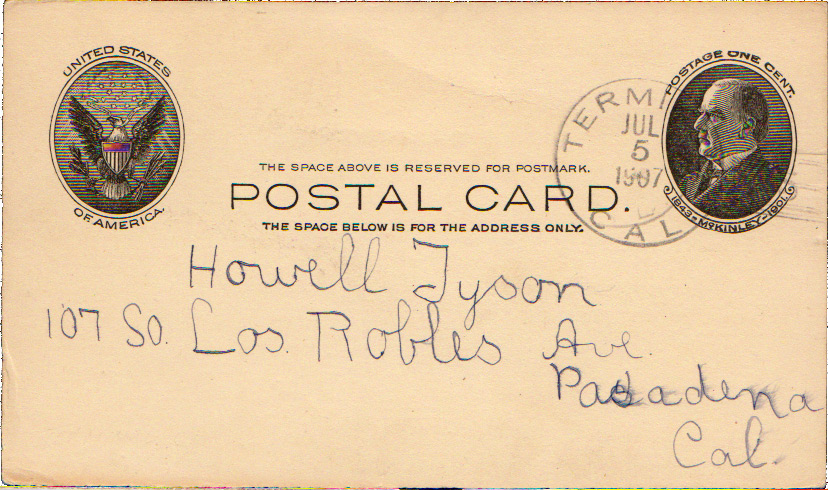 UNITED STATES
OF AMERICA.
POSTAGE ONE CENT.
1843-McKINLEY-1901.
TERMI
JUL
5
1907
CAL
THE SPACE ABOVE IS RESERVED FOR POSTMARK.
POSTAL CARD.
THE SPACE BELOW IS FOR THE ADDRESS ONLY.
Howell Tyson
107 So. Los Robles Ave.
Pasadena
Cal.